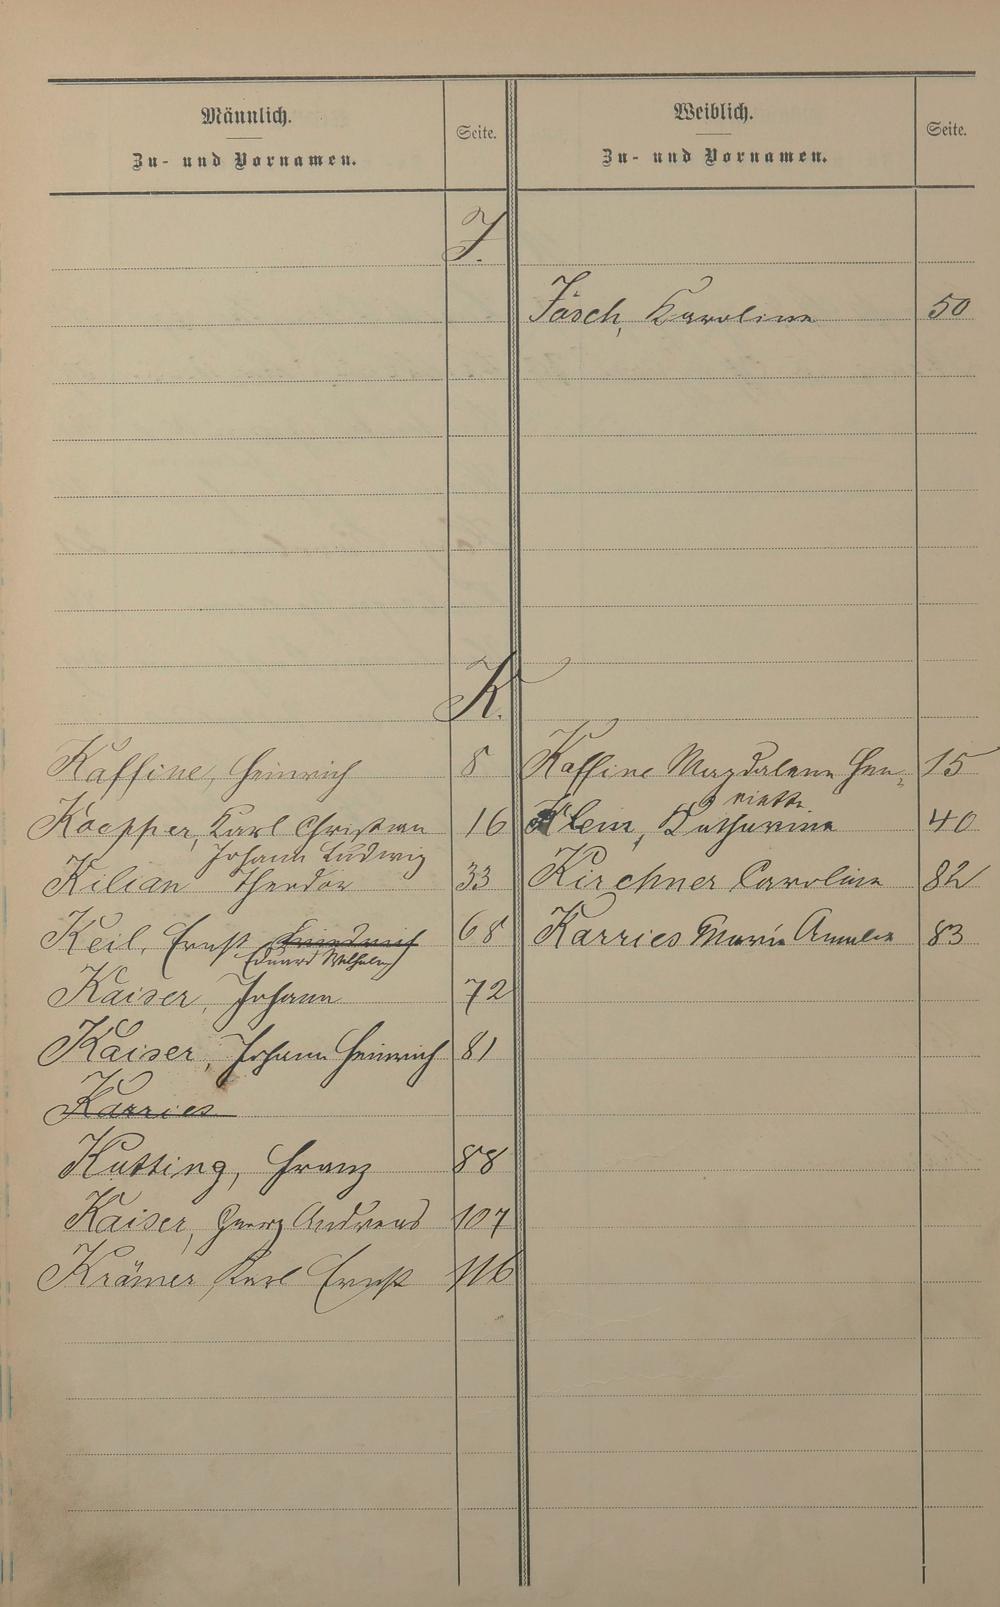 Männlich.
Zu- und Vornamen.
Seite.
Weiblich.
Zu- und Vornamen.
Seite.
J.
Jäsch, Karoline 50
K.
Kaffine, Heinrich 8
Kaffine Magdalena Hen-
riette 15
Koepper, Karl Christian 16
Klein, Katharina 40
Johann Ludwig
Kilian Theodor 33
Kirchner Caroline 82
Keil, Ernst Friedrich 68
Eduard Wilhelm
Karries Marie Amalie 83
Kaiser, Johann 72
Kaiser, Johann Heinrich 81
Karries
Kutting, Franz 88
Kaiser, Georg Andreas 107
Krämer, Karl Ernst 116